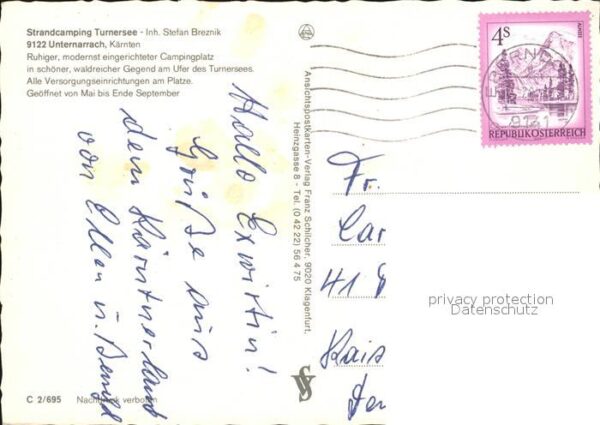 Strandcamping Turnersee - Inh. Stefan Breznik
9122 Unternarrach, Kärnten
Ruhiger, modernst eingerichteter Campingplatz
in schöner, waldreicher Gegend am Ufer des Turnersees.
Alle Versorgungseinrichtungen am Platze.
Geöffnet von Mai bis Ende September
Hallo Exwirtin!
Grüße aus
dem Kärntnerland
von Ellen u.
Ansichtspostkarten-Verlag Franz Schilcher, 9020 Klagenfurt,
Heinzgasse 8 - Tel. (0 42 22) 56 4 75
4S
REPUBLIK ÖSTERREICH
9131
Fr.
Car
41
Kais
privacy protection
Datenschutz
C 2/695 Nachdruck verboten